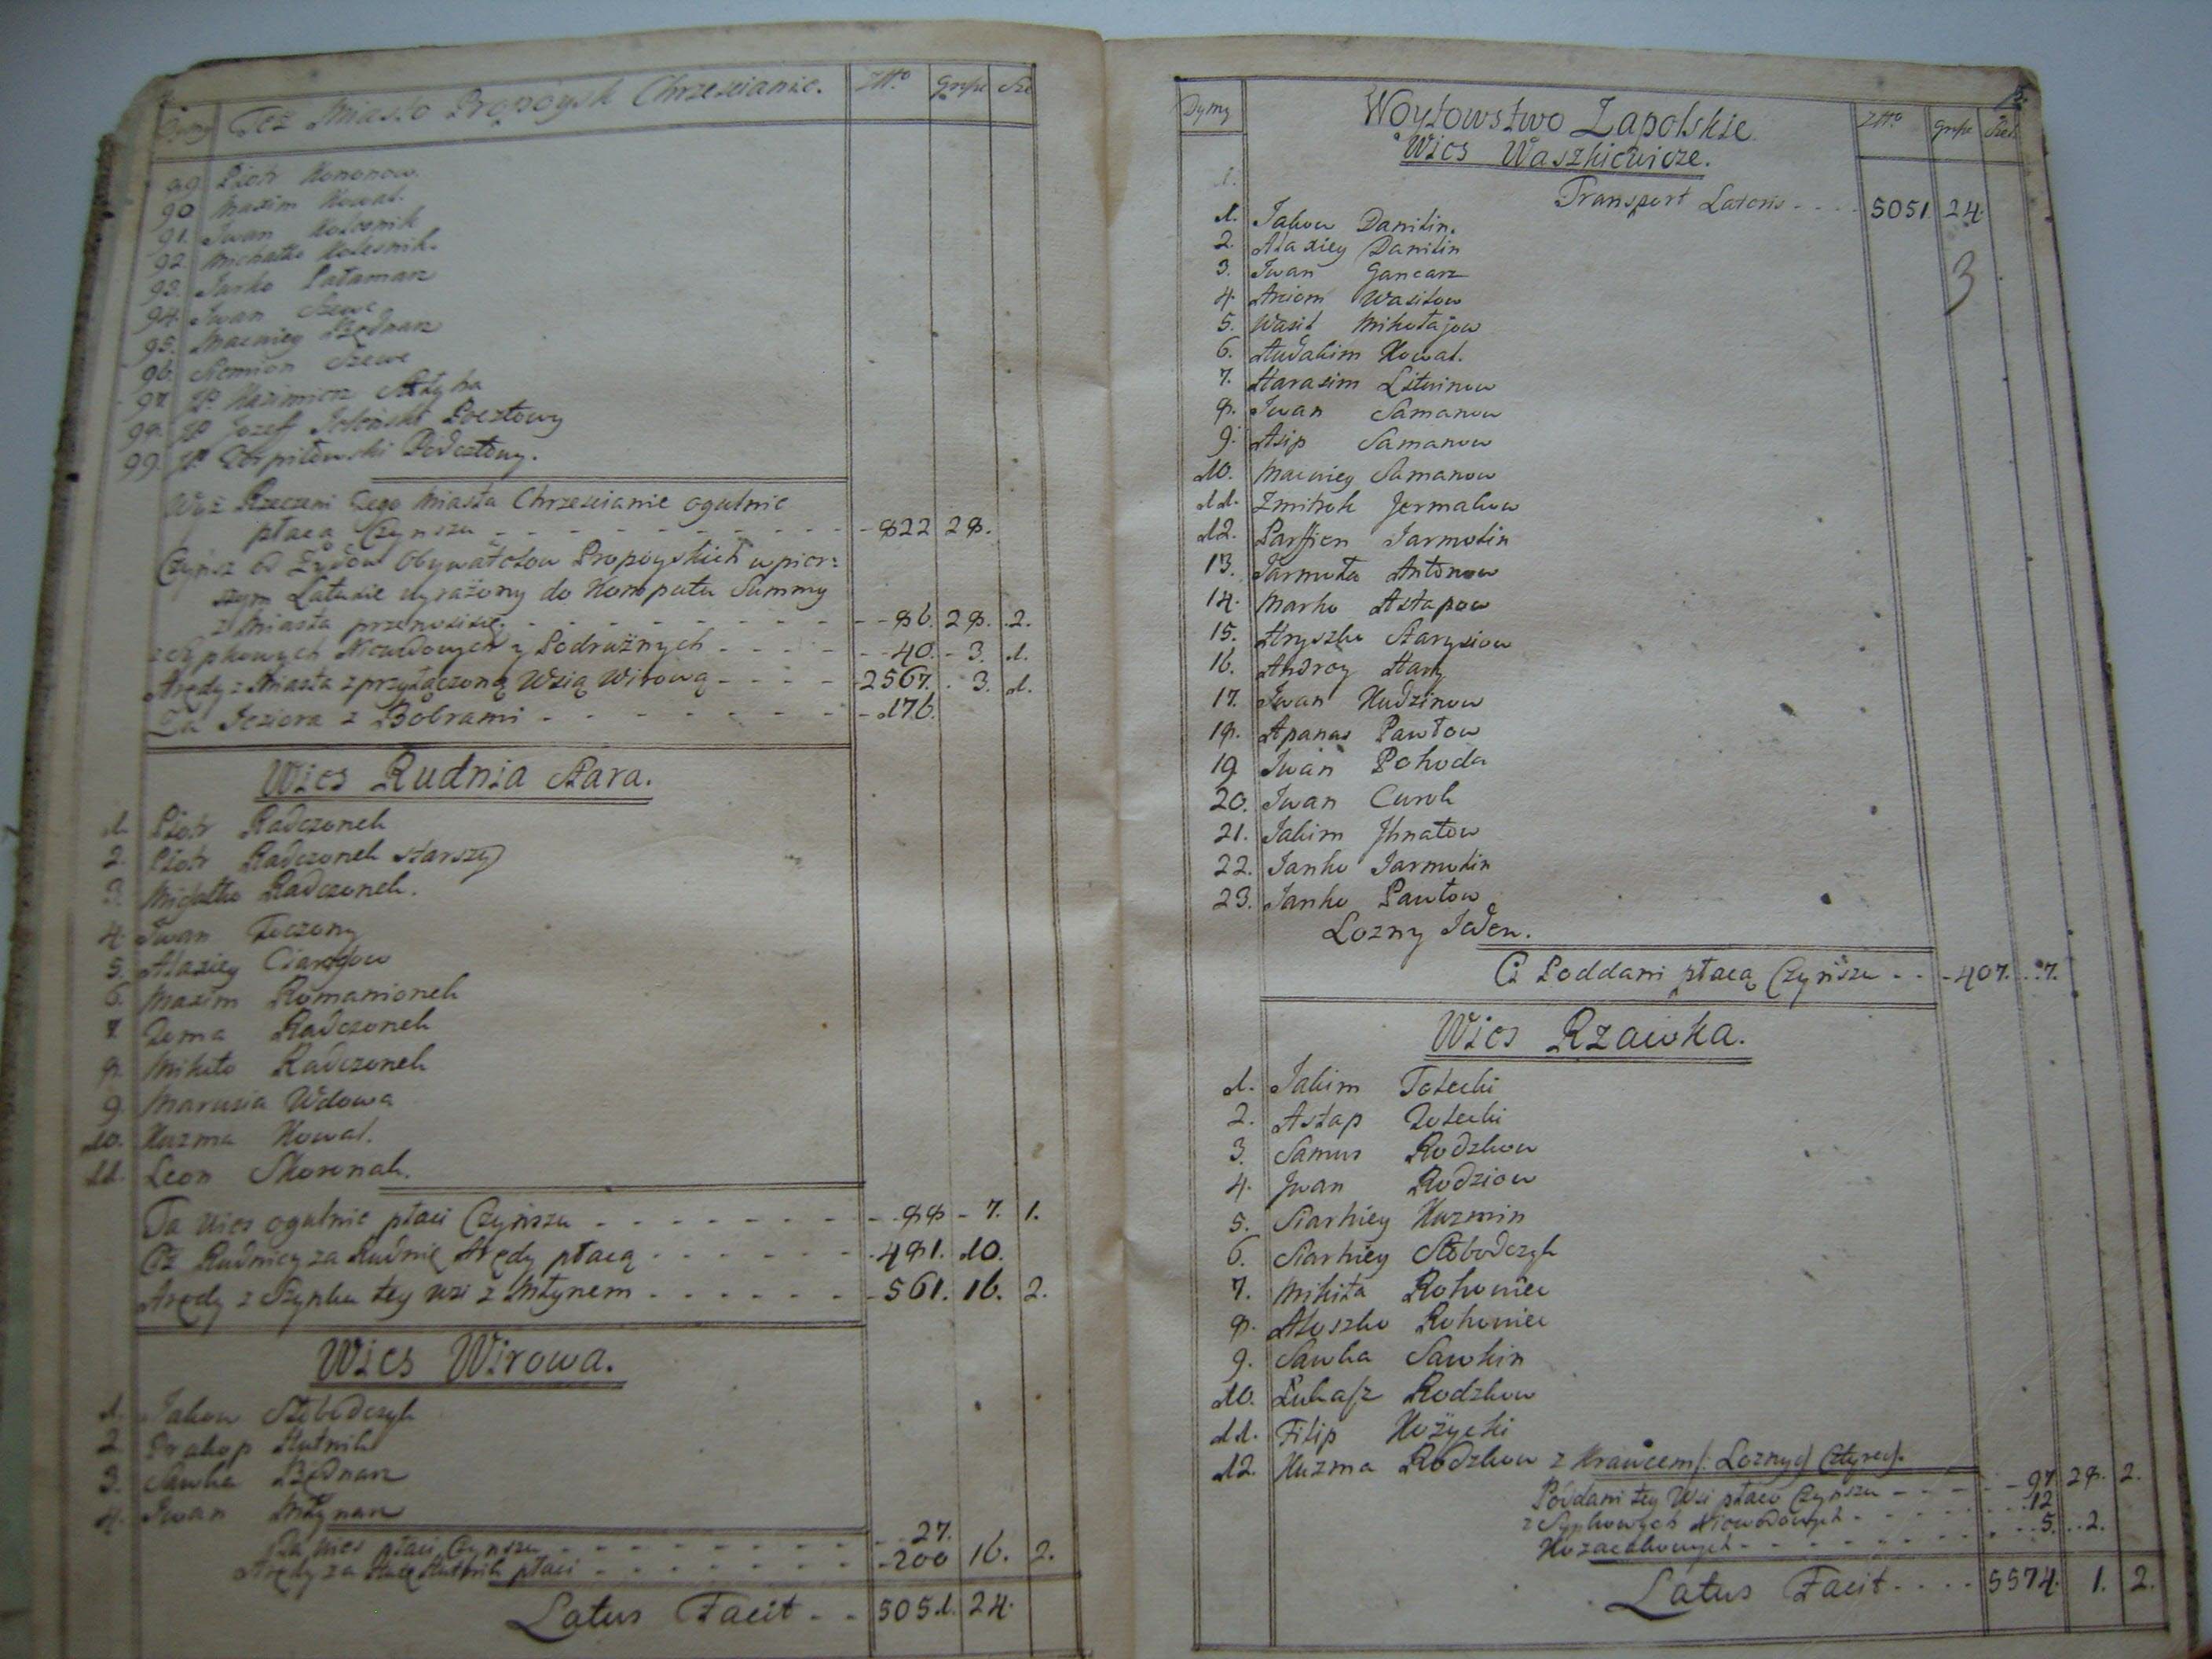 Dymy Też Miasto Propoysk Chrzescianie. Złło Grosze Sze
89 Piotr Kononow.
90 Maxim Kowal.
91. Jwan Kolesnik
92. Michałko Kolesnik.
93. Jarko Pałamarz
94. Jwan Szewc
95. Macwiey Bednarz
96. Siemion Szewc
97 JP. Kazimierz
98. JP Jozeff Poczłowy
99. JP. Podczłowy.
Wyż Rzeczeni Tego Miasta Chrzescianie ogulnie
płacą Czynszu - 822 28.
Czynsz od Żydow Obywatelow Propoyskich w pier:
szym Latusie wyrażony do Komputu Summy
z Miasta przenosi się - 86. 28. 2.
Niewodowych y Podrużnych - 40. 3. 1.
Arędy z Miasta z przyłączoną Wsią Wirową - 2567. 3. 1.
Za Jeziora z Bobrami - 176.
Wies Rudnia Stara.
1. Piotr Radczonek
2. Piotr Radczonek starszy
3. Michałko Radczonek.
4. Jwan
5. Alaxiey
6. Maxim Romanionek
7 Zoma Radczonek
8. Mikito Radczonek
9. Marusia Wdowa
10. Kuzma Kowal.
11. Leon Skoronak.
Ta wies ogulnie płaci Czynszu - 88 - 7. 1.
Ciż Rudnicy za Rudnię Arędy płacą - 481. 10.
Arędy z Szynku tey wsi z Młynem - 561. 16. 2.
Wies Wirowa.
1. Jakow Słobodczyk
2. Prakop Hutnik
3. Sawka Bednarz
4. Jwan Młynarz
Ta wies płaci Czynszu - 27.
Arędy za Hutę Hutnik płaci - 200 16. 2.
Latus Facit - 5051. 24.
5.
Dymy Woytowstwo Zapolskie Złło Grosze Szel
Wies Waszkiewicze.
Transport Lateris - 5051. 24.
1. Jakow Danilin.
2. Alaxiey Danilin
3. Jwan Gancarz 3
4. Arciom Wasilow
5. Wasil Mikołajow
6. Audakim Kowal.
7. Harasim Litwinow
8. Jwan Samanow
9. Asip Samanow
10. Macwiey Samanow
11. Zmitrok Jermakow
12. Parffien Jarmolin
13. Jarmoła Antonow
14. Marko Astapow
15. Hryszko Starysiow
16. Androy
17. Jwan Kudzinow
18. Apanas Pawłow
19 Jwan Pohoda
20. Jwan Curok
21. Jakim Jhnatow
22. Janko Jarmolin
23. Janko Pawłow
Lozny Jeden.
Ci Poddani płacą Czynszu - 407. 7.
Wies Rzawka.
1. Jakim Totecki
2. Astap Totecki
3. Samus Rodzkow
4. Jwan Rodziow
5. Siarhiey Kuzmin
6. Siarhiey Słobodczyk
7. Mikita Rohowiec
8. Aloszko Rohowiec
9. Sawka Sawkin
10. Łukasz Rodzkow
11. Filip Kozycki
12. Kuzma Rodzkow z Krawcem /: Loznych Czterech.
Poddani tey Wsi płaco Czynszu - 97 28. 2.
z Sypkowych Niewodowych - 12
Kozaczkowych - 5. 2.
Latus Facit - 5574. 1. 2.